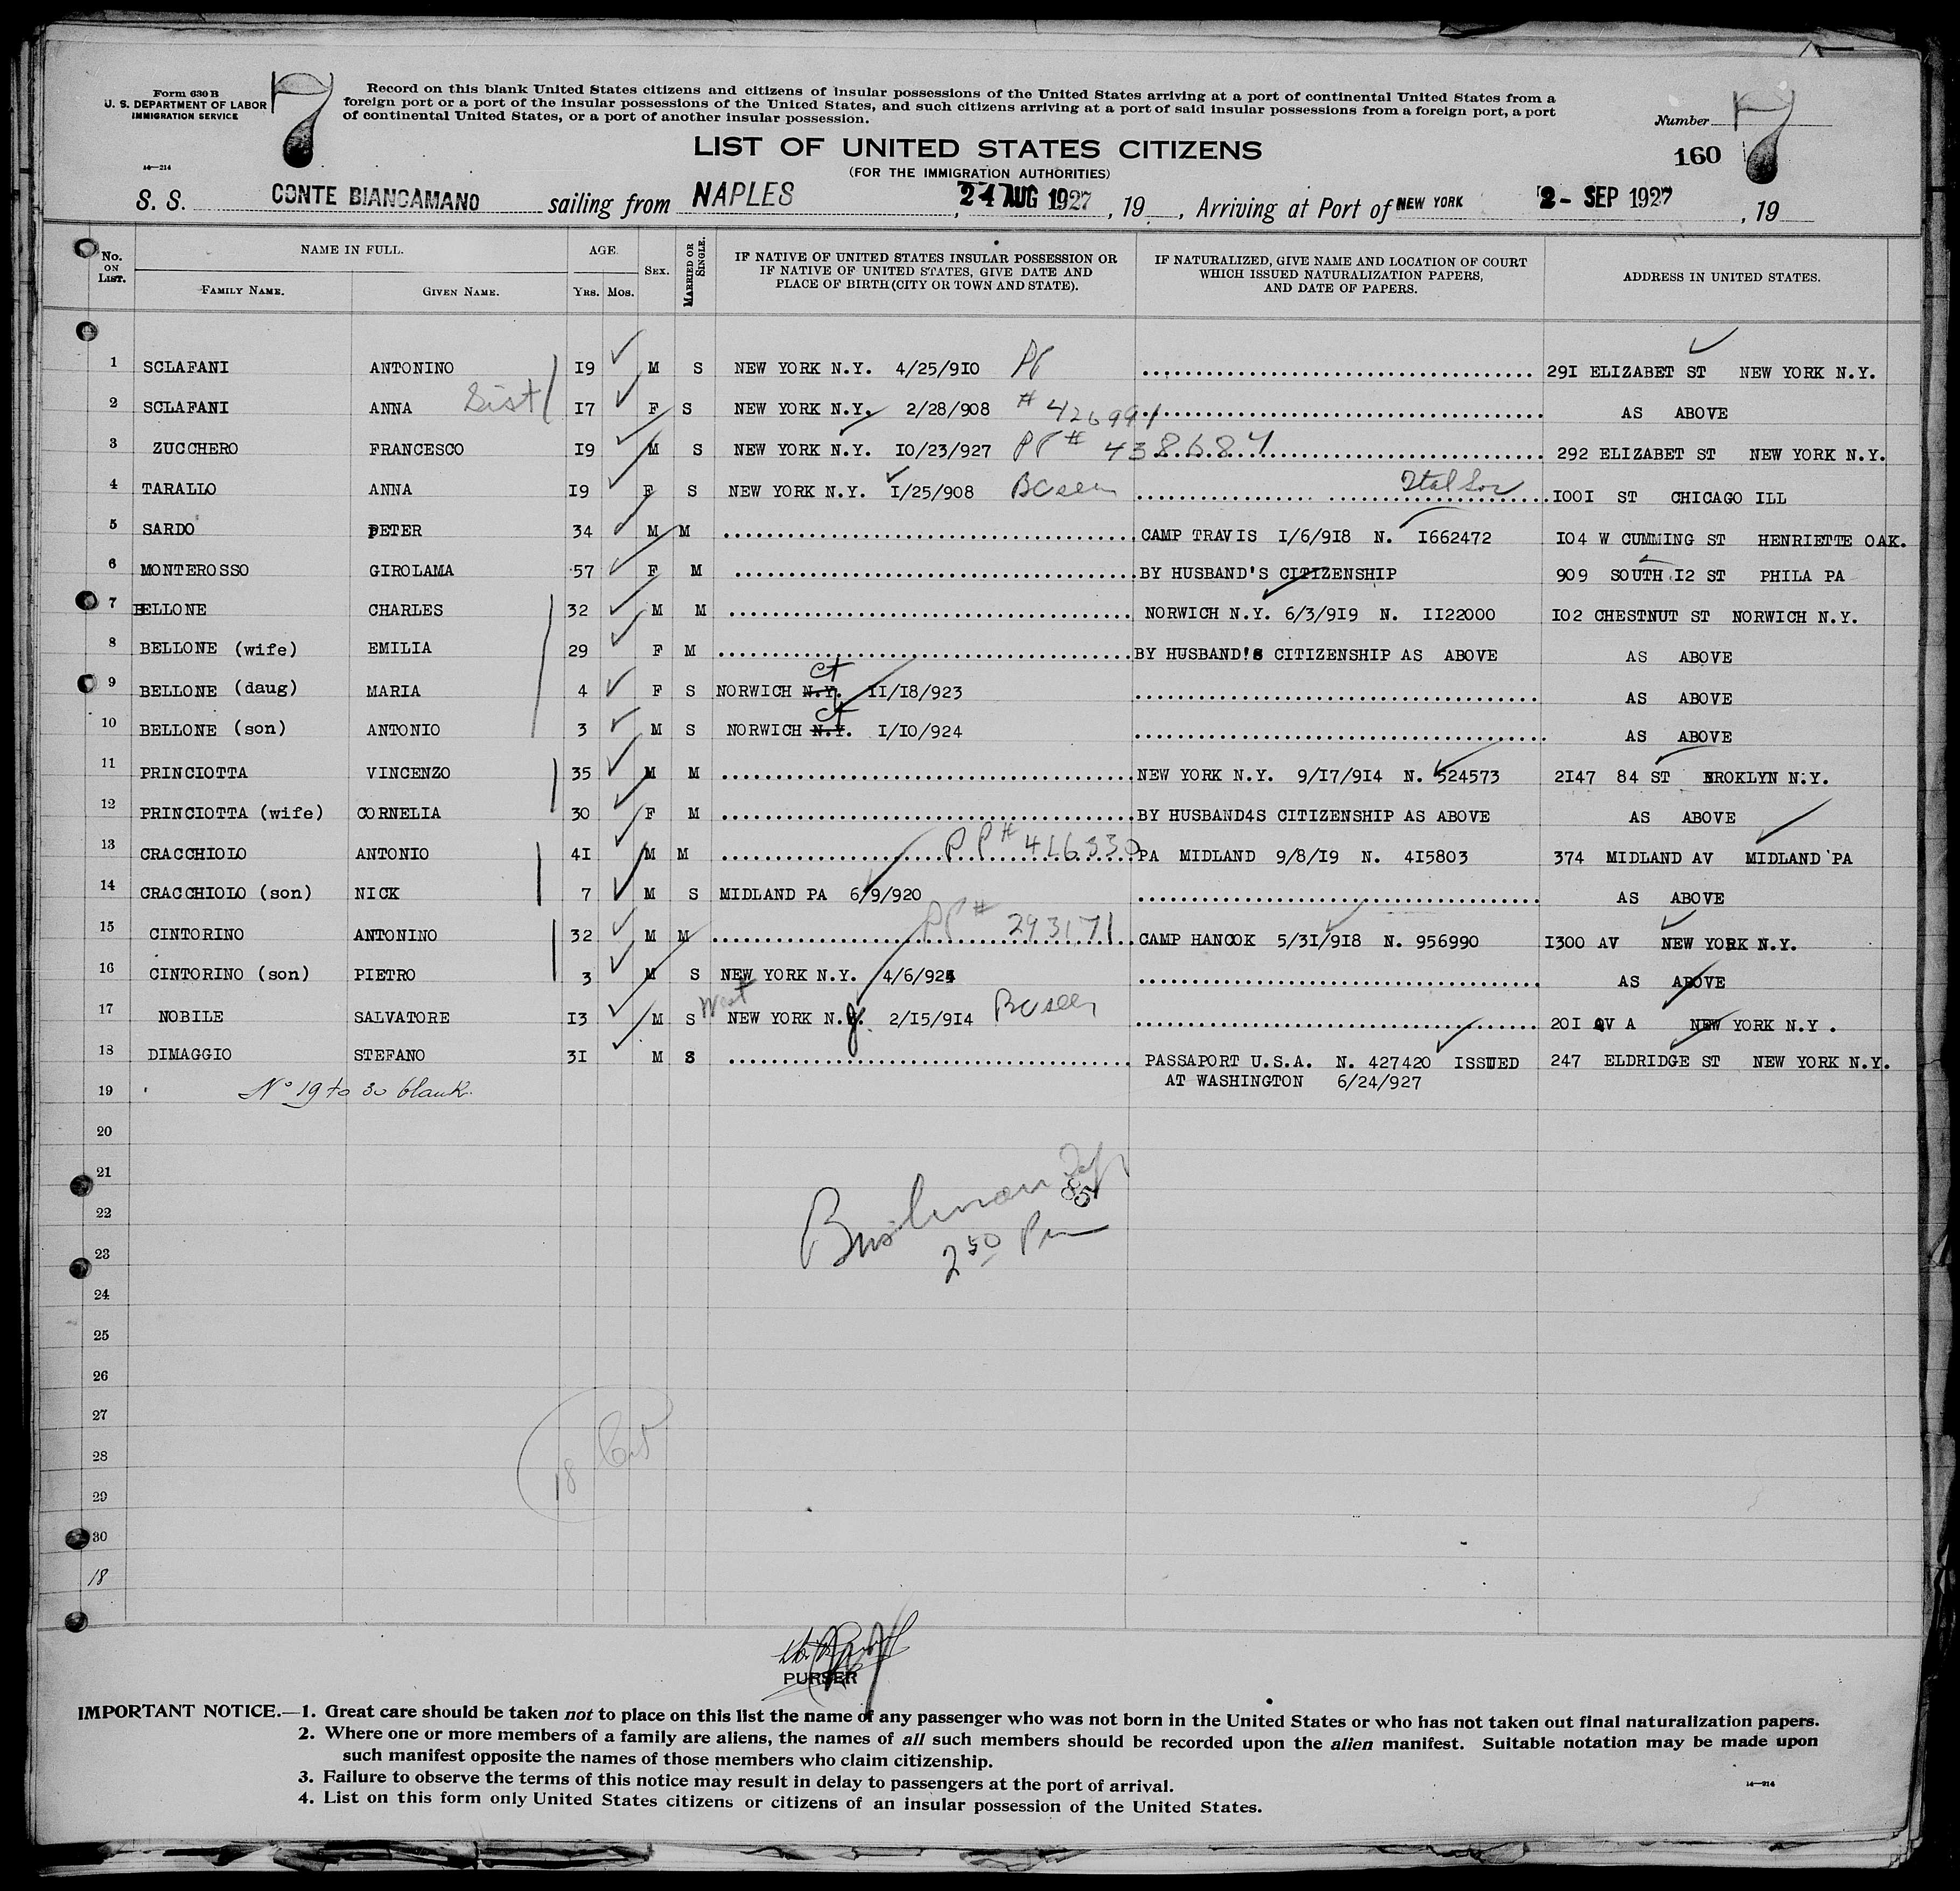 Form 630 B
U. S. DEPARTMENT OF LABOR
IMMIGRATION SERVICE
14—214
7
Record on this blank United States citizens and citizens of insular possessions of the United States arriving at a port of continental United States from a
foreign port or a port of the insular possessions of the United States, and such citizens arriving at a port of said insular possessions from a foreign port, a port
of continental United States, or a port of another insular possession.
LIST OF UNITED STATES CITIZENS
(FOR THE IMMIGRATION AUTHORITIES)
Number 7
160
S. S. CONTE BIANCAMANO sailing from NAPLES, 24 AUG 1927, 19 , Arriving at Port of NEW YORK 2- SEP 1927, 19
No. ON LIST. NAME IN FULL. FAMILY NAME. GIVEN NAME. AGE. YRS. MOS. SEX. MARRIED OR SINGLE. IF NATIVE OF UNITED STATES INSULAR POSSESSION OR IF NATIVE OF UNITED STATES, GIVE DATE AND PLACE OF BIRTH (CITY OR TOWN AND STATE). IF NATURALIZED, GIVE NAME AND LOCATION OF COURT WHICH ISSUED NATURALIZATION PAPERS, AND DATE OF PAPERS. ADDRESS IN UNITED STATES.
1 SCLAFANI ANTONINO I9 M S NEW YORK N.Y. 4/25/9I0 29I ELIZABET ST NEW YORK N.Y.
2 SCLAFANI ANNA Sist I7 F S NEW YORK N.Y. 2/28/908 # 426991 AS ABOVE
3 ZUCCHERO FRANCESCO I9 M S NEW YORK N.Y. IO/23/927 PP # 438687 292 ELIZABET ST NEW YORK N.Y.
4 TARALLO ANNA I9 F S NEW YORK N.Y. I/25/908 BC seen I00I ST CHICAGO ILL
5 SARDO PETER 34 M M CAMP TRAVIS I/6/9I8 N. I662472 IO4 W CUMMING ST HENRIETTE OAK.
6 MONTEROSSO GIROLAMA 57 F M BY HUSBAND'S CITIZENSHIP 909 SOUTH I2 ST PHILA PA
7 BELLONE CHARLES 32 M M NORWICH N.Y. 6/3/9I9 N. II22000 IO2 CHESTNUT ST NORWICH N.Y.
8 BELLONE (wife) EMILIA 29 F M BY HUSBAND'S CITIZENSHIP AS ABOVE AS ABOVE
9 BELLONE (daug) MARIA 4 F S NORWICH N.Y. ct II/I8/923 AS ABOVE
10 BELLONE (son) ANTONIO 3 M S NORWICH N.Y. ct I/IO/924 AS ABOVE
11 PRINCIOTTA VINCENZO 35 M M NEW YORK N.Y. 9/I7/9I4 N. 524573 2I47 84 ST BROKLYN N.Y.
12 PRINCIOTTA (wife) CORNELIA 30 F M BY HUSBAND4S CITIZENSHIP AS ABOVE AS ABOVE
13 CRACCHIOLO ANTONIO 4I M M PP # 416330 PA MIDLAND 9/8/I9 N. 4I5803 374 MIDLAND AV MIDLAND PA
14 CRACCHIOLO (son) NICK 7 M S MIDLAND PA 6/9/920 AS ABOVE
15 CINTORINO ANTONINO 32 M M PP # 293171 CAMP HANCOK 5/3I/9I8 N. 956990 I300 AV NEW YORK N.Y.
16 CINTORINO (son) PIETRO 3 M S NEW YORK N.Y. 4/6/924 AS ABOVE
17 NOBILE SALVATORE I3 M S West NEW YORK N.J. 2/I5/9I4 BC seen 20I AV A NEW YORK N.Y.
18 DIMAGGIO STEFANO 3I M S PASSAPORT U.S.A. N. 427420 ISSUED 247 ELDRIDGE ST NEW YORK N.Y.
AT WASHINGTON 6/24/927
19 No 19 to 30 blank.
20
21
22
23
24
25
26
27
28
29
30
18
2 50 Pm
18
PURSER
IMPORTANT NOTICE.—1. Great care should be taken not to place on this list the name of any passenger who was not born in the United States or who has not taken out final naturalization papers.
2. Where one or more members of a family are aliens, the names of all such members should be recorded upon the alien manifest. Suitable notation may be made upon
such manifest opposite the names of those members who claim citizenship.
3. Failure to observe the terms of this notice may result in delay to passengers at the port of arrival.
4. List on this form only United States citizens or citizens of an insular possession of the United States.
14—214